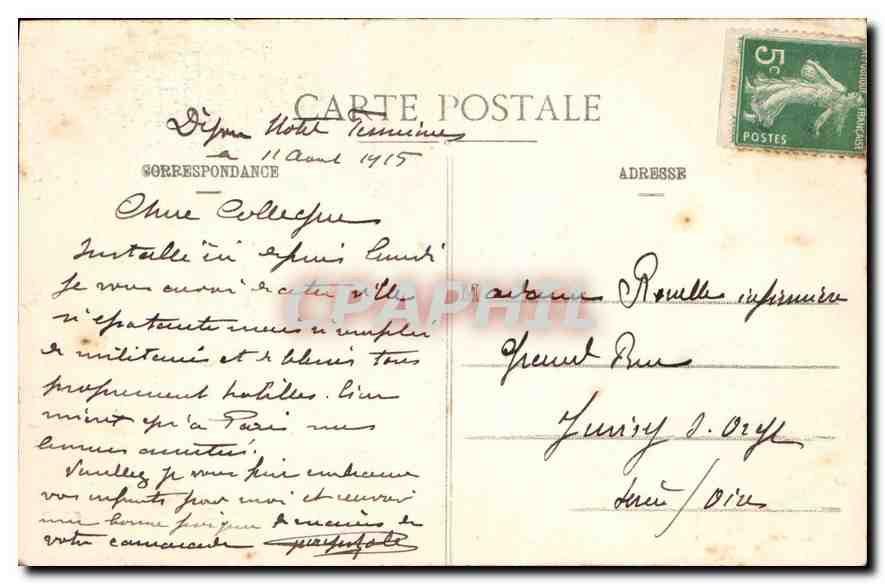 5c
RÉPUBLIQUE FRANÇAISE
POSTES
CARTE POSTALE
Dijon Hotel Terminus
11 Aout 1915
CORRESPONDANCE
ADRESSE
Chere Collegue
Installé ici depuis lundi
je vous envoi de cette ville
si épatante mais si remplie
de militaires et de blessés tous
proprement habillés.
qu'à Paris mes
bonnes amitiés.
Veuillez je vous prie embrasser
vos enfants pour moi et recevoir
une bonne poignee de mains de
votre camarade
Madame Rouelle infirmière
Grand Rue
Juvisy s. Orge
Seine / Oise
CPAPHIL